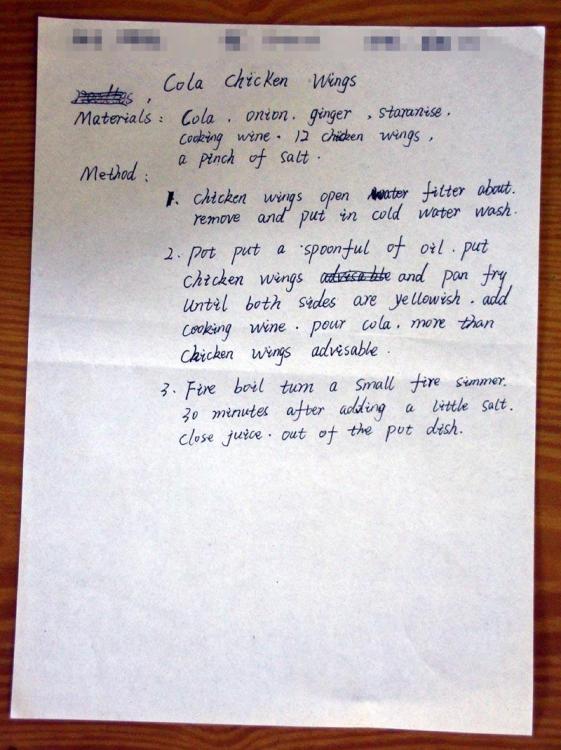 Cola Chicken Wings
Materials : Cola . onion . ginger , staranise .
cooking wine . 12 chicken wings ,
a pinch of salt .
Method :
1. Chicken wings open water filter about .
remove and put in cold water wash .
2. Pot put a spoonful of oil . put
chicken wings and pan fry
until both sides are yellowish . add
cooking wine . pour cola . more than
chicken wings advisable .
3. Fire boil turn a small fire simmer .
30 minutes after adding a little salt .
close juice . out of the pot dish .